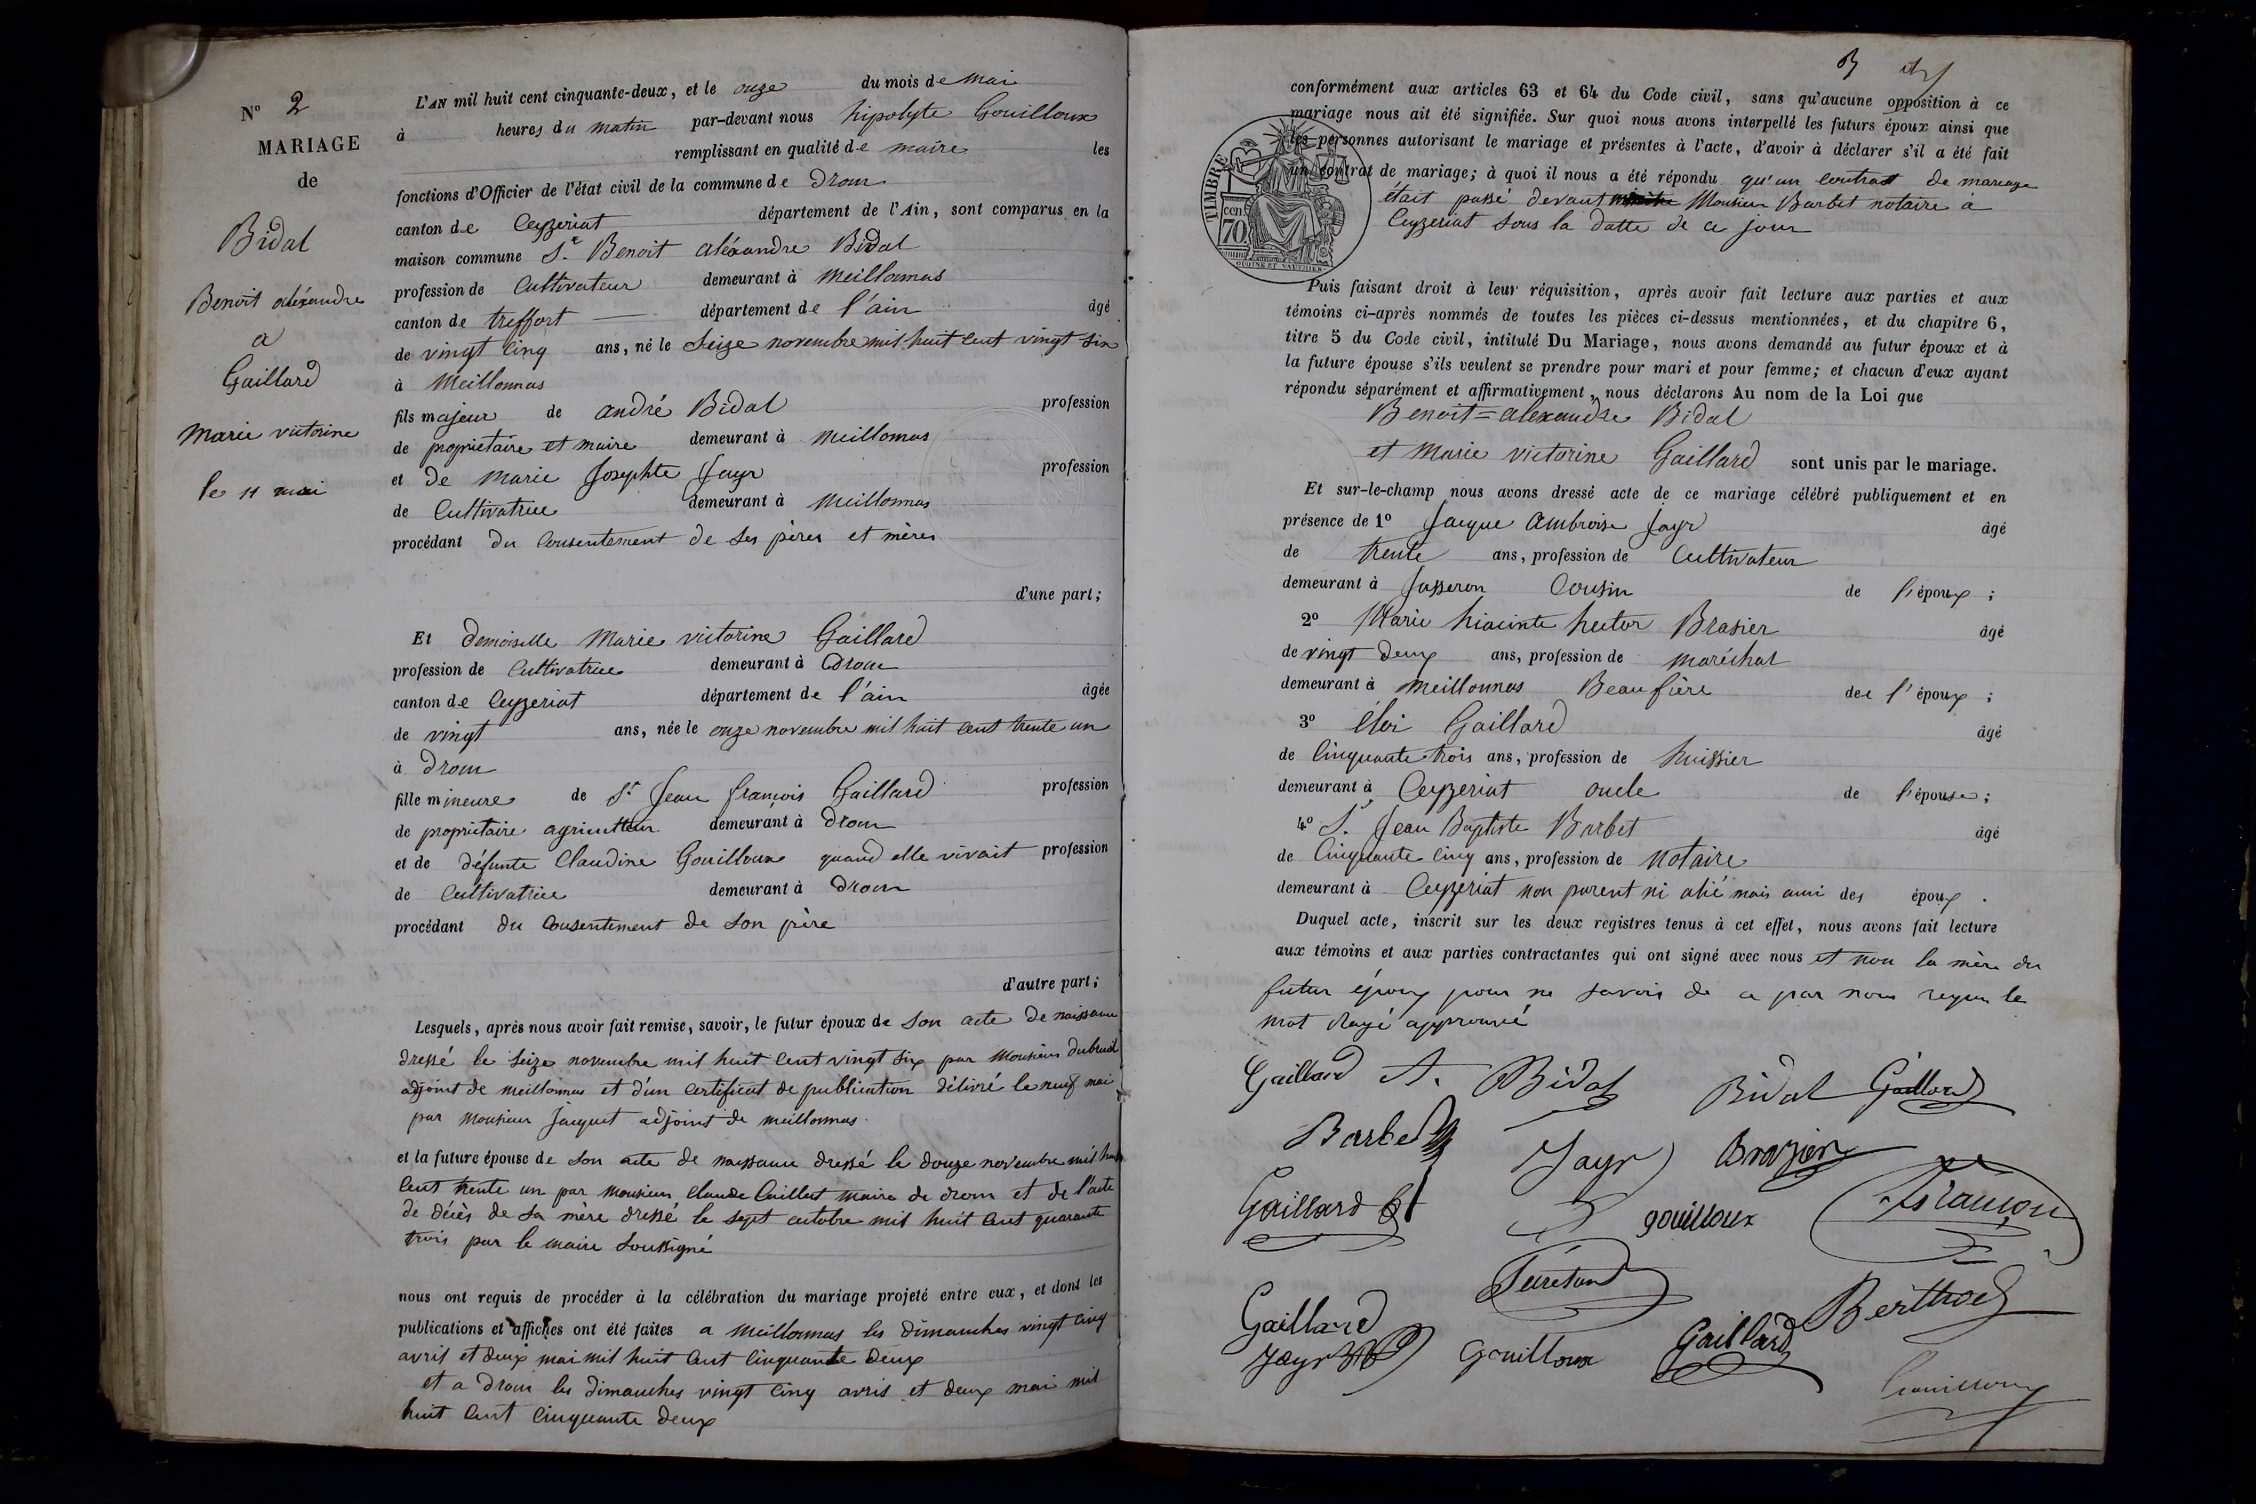 N° 2
MARIAGE
de
Bidal
Benoit aléxandre
a
Gaillard
Marie victorine
le 11 mai
L'AN mil huit cent cinquante-deux, et le onze du mois de mai
à heures du matin par-devant nous hipolyte Gouilloux
remplissant en qualité de maire les
fonctions d'Officier de l'état civil de la commune de Drom
canton de Ceyzeriat département de l'Ain, sont comparus en la
maison commune Sr Benoit aléxandre Bidal
profession de Cultivateur demeurant à Meillonnas
canton de treffort département de l'ain âgé
de vingt cinq ans, né le Seize novembre mil huit cent vingt six
à Meillonnas
fils majeur de andré Bidal profession
de propriétaire et maire demeurant à Meillonnas
et de Marie Josephte Jayr profession
de Cultivatrice demeurant à Meillonnas
procédant du consentement de ses pères et mères
d'une part;
Et Demoiselle Marie victorine Gaillard
profession de Cultivatrice demeurant à Drom
canton de Ceyzeriat département de l'ain âgée
de vingt ans, née le onze novembre mil huit cent trente un
à Drom
fille mineure de Sr Jean françois Gaillard profession
de propriétaire agriculteur demeurant à Drom
et de défunte Claudine Gouilloux quand elle vivait profession
de Cultivatrice demeurant à Drom
procédant du consentement de son père
d'autre part;
Lesquels, après nous avoir fait remise, savoir, le futur époux de son acte de naissance
dressé le Seize novembre mil huit cent vingt six par Monsieur dubreuil
adjoint de meillonnas et d'un certificat de publication délivré le neuf mai
par Monsieur Jacquet adjoint de meillonnas.
et la future épouse de son acte de naissance dressé le douze novembre mil huit
cent trente un par Monsieur Claude Caillat maire de drom et de l'acte
de décès de sa mère dressé le sept octobre mil huit cent quarante
trois par le maire soussigné
nous ont requis de procéder à la célébration du mariage projeté entre eux, et dont les
publications et affiches ont été faites a Meillonnas les dimanches vingt cinq
avril et deux mai mil huit cent cinquante deux
et a Drom les dimanches vingt cinq avril et deux mai mil
huit cent cinquante deux
conformément aux articles 63 et 64 du Code civil, sans qu'aucune opposition à ce
mariage nous ait été signifiée. Sur quoi nous avons interpellé les futurs époux ainsi que
les personnes autorisant le mariage et présentes à l'acte, d'avoir à déclarer s'il a été fait
un contrat de mariage; à quoi il nous a été répondu qu'un contrat de mariage
était passé devant Monsieur Barbet notaire a
Ceyzeriat sous la datte de ce jour
TIMBRE
cen.
70
Puis faisant droit à leur réquisition, après avoir fait lecture aux parties et aux
témoins ci-après nommés de toutes les pièces ci-dessus mentionnées, et du chapitre 6,
titre 5 du Code civil, intitulé Du Mariage, nous avons demandé au futur époux et à
la future épouse s'ils veulent se prendre pour mari et pour femme; et chacun d'eux ayant
répondu séparément et affirmativement, nous déclarons Au nom de la Loi que
Benoit=alexandre Bidal
et Marie victorine Gaillard sont unis par le mariage.
Et sur-le-champ nous avons dressé acte de ce mariage célébré publiquement et en
présence de 1° Jacque Ambroise Jayr âgé
de trente ans, profession de Cultivateur
demeurant à Jasseron Cousin de l'époux ;
2° Marie hiacinte hector Brasier âgé
de vingt deux ans, profession de maréchal
demeurant à Meillonnas Beaufrère de l'époux ;
3° éloi Gaillard âgé
de Cinquante trois ans, profession de huissier
demeurant à Ceyzeriat oncle de l'épouse ;
4° Sr Jean Baptiste Barbet âgé
de Cinquante cinq ans, profession de Notaire
demeurant à Ceyzeriat non parent ni alié mais ami des époux .
Duquel acte, inscrit sur les deux registres tenus à cet effet, nous avons fait lecture
aux témoins et aux parties contractantes qui ont signé avec nous et non la mère du
futur époux pour ne savoir de ce par nous requis le
mot rayé approuvé
Gaillard A. Bidal Bidal Gaillard
Barbet Jayr Brazier
Gaillard gouilloux françon
Gaillard Berthod
Jayr Gouilloux Gaillard
Gouilloux